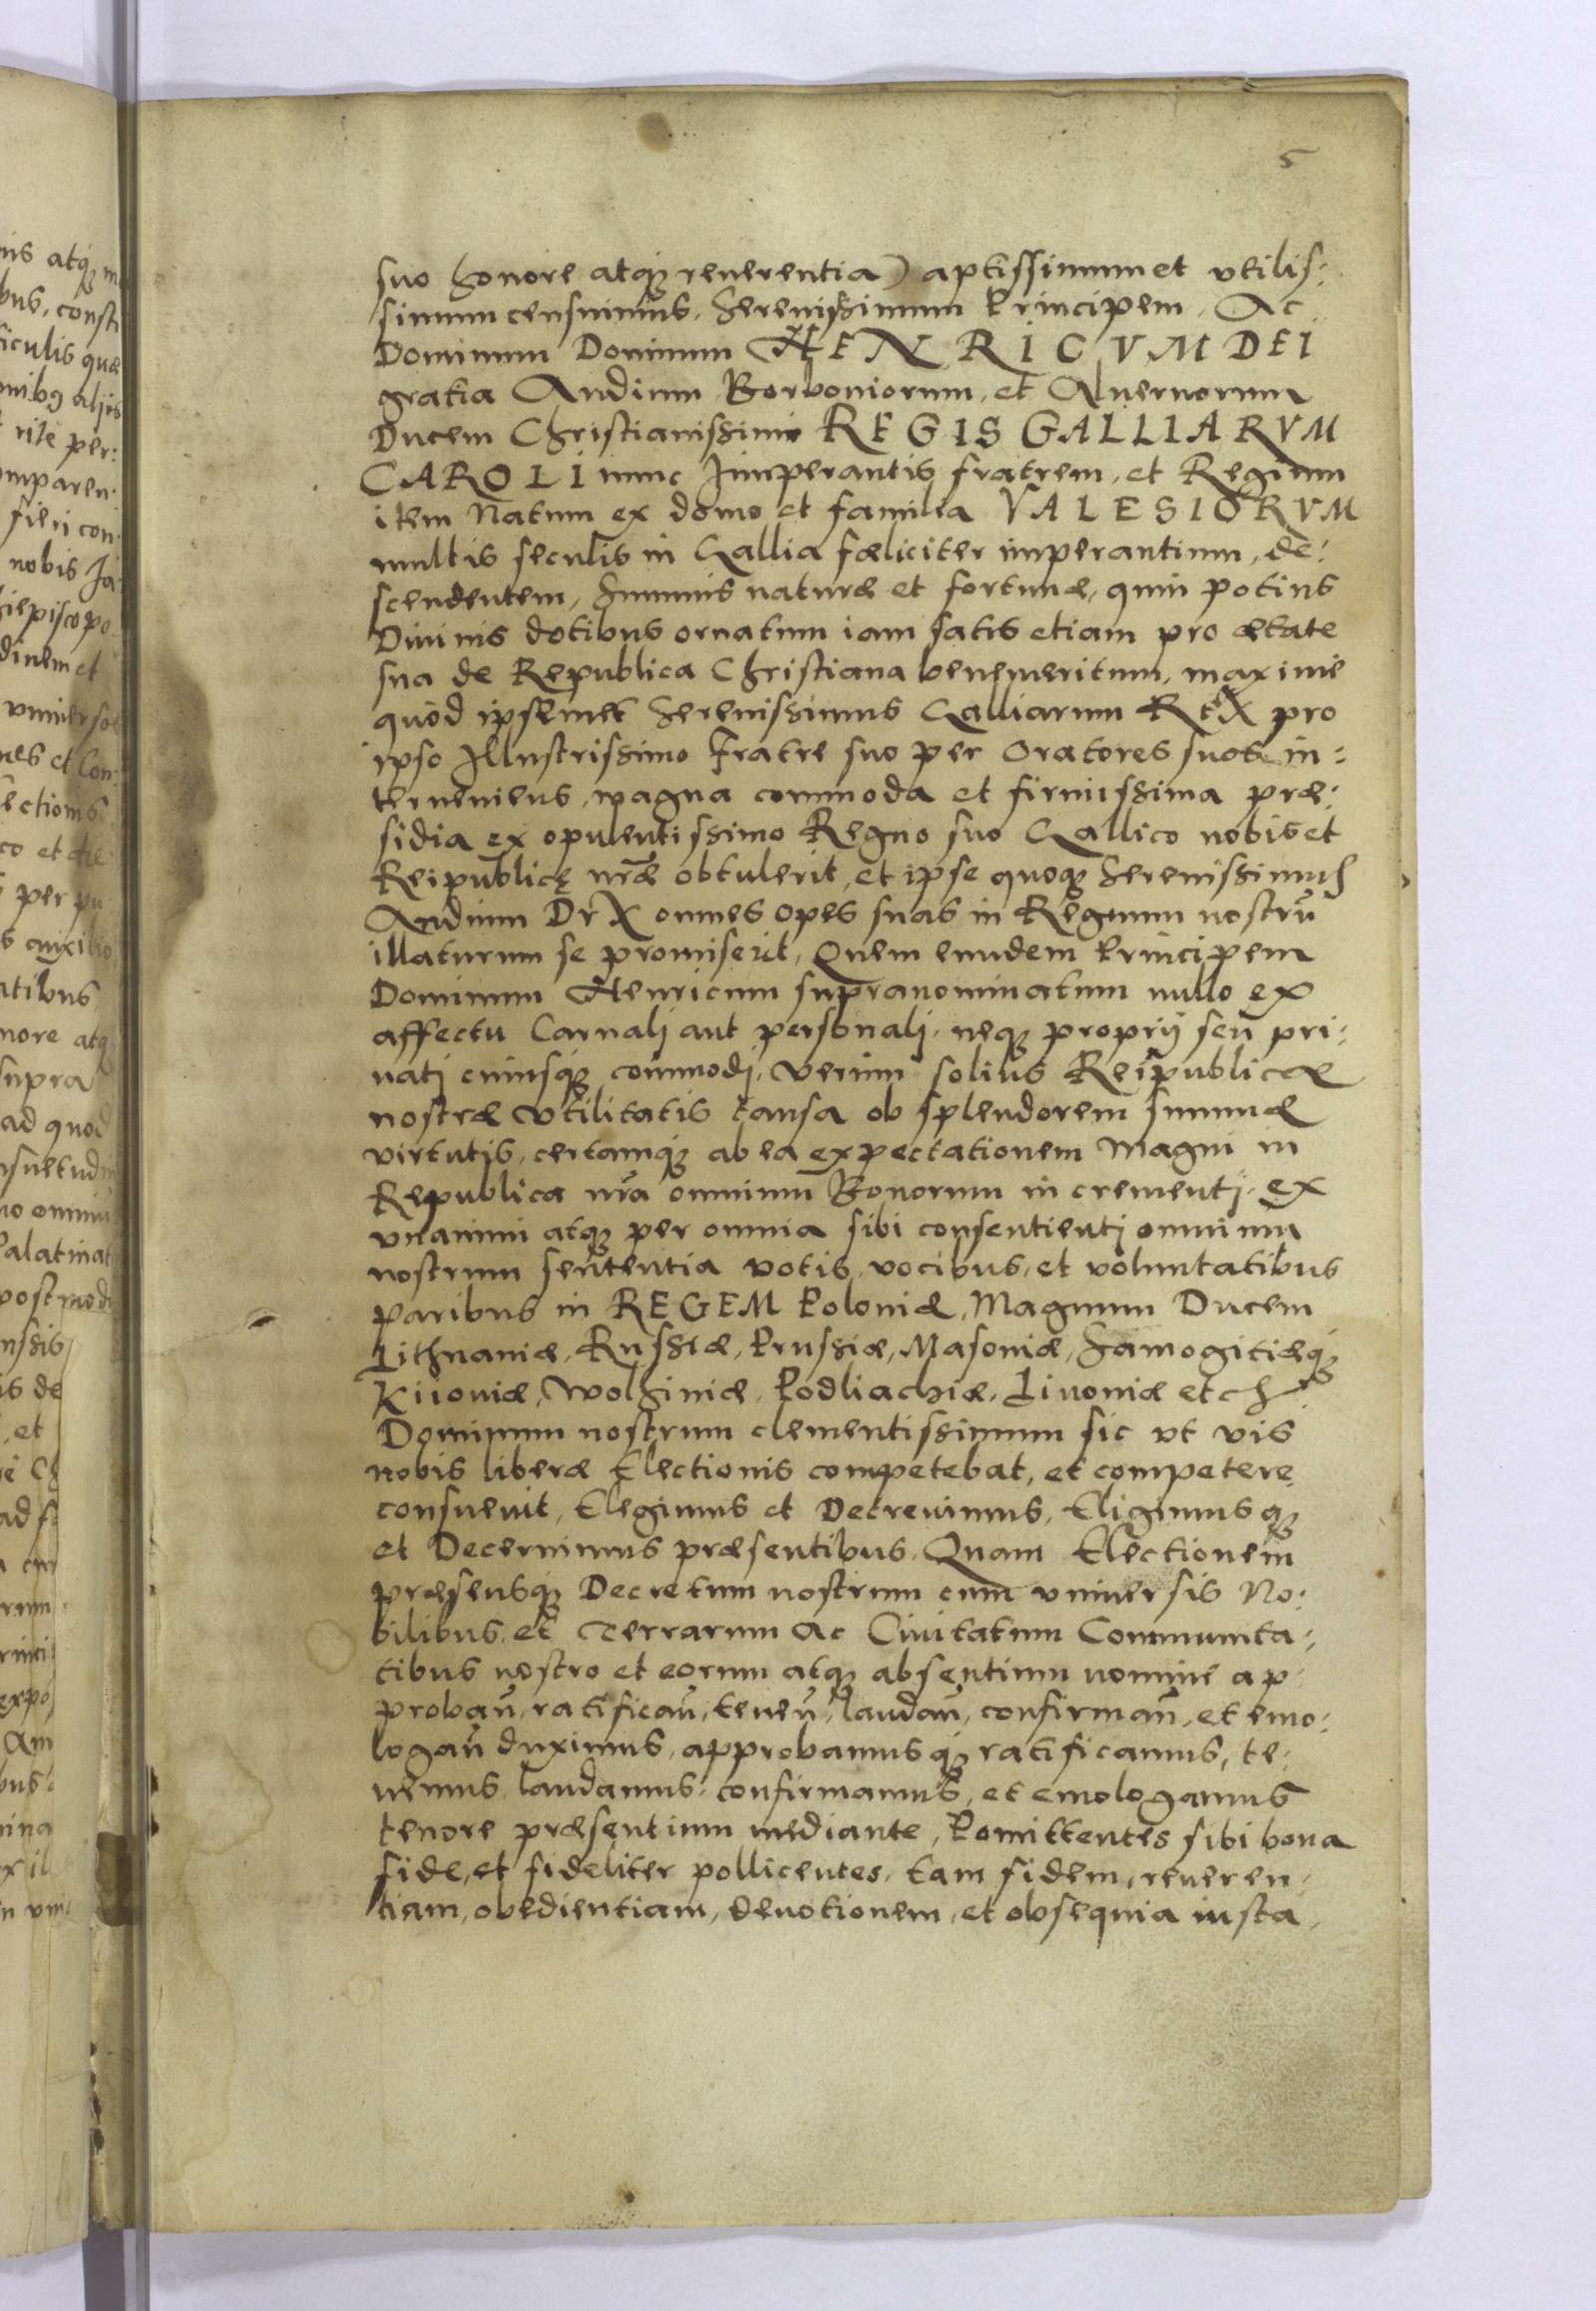 5
suo honore atq reuerentia) aptissimum et vtilis:
simum censuimus, Serenissimum Principem, Ac
Dominum Dominum HENRICVM DEI
gratia Andium Borboniorum, et Aluernorum
Ducem Christianissimi REGIS GALLIARVM
CAROLI nunc Imperantis fratrem, et Regium
item Natum ex domo et familia VALESIORVM
multis seculis in Gallia fæliciter imperantium, de:
scendentem, Summis naturæ et fortunæ, quin potius
Diuinis dotibus ornatum iam satis etiam pro ætate
sua de Republica Christiana benemeritum, maxime
quòd ipsemet Serenissimus Galliarum REX pro
ipso Illustrissimo Fratre suo per Oratores suos in:
terueniens, magna commoda et firmissima præ:
sidia ex opulentissimo Regno suo Gallico nobis et
Reipublicę nr̃æ obtulerit, et ipse quoq Serenissimus
Andium DrX omnes opes suas in Regnum nostrũ
illaturum se promiserit, Quem eundem Principem
Dominum Henricum supranominatum nullo ex
affectu Carnali aut personali, neq proprij seu pri:
uati cuiusq commodi, verum solius Reipublicæ
nostræ vtilitatis causa ob splendorem summæ
virtutis, certamq ab ea expectationem magni in
Republica nr̃a omnium Bonorum in crementi, ex
vnanimi atq per omnia sibi consentienti omnium
nostrum sententia votis, vocibus, et voluntatibus
paribus in REGEM Poloniæ, Magnum Ducem
Lithuaniæ, Russiæ, Prussiæ, Masoniæ, Samogitiæq
Kijouiæ, Wolhiniæ, Podliachiæ, Liuoniæ etc
Dominum nostrum clementissimum sic vt vis
nobis liberæ Electionis competebat, et competere
consueuit, Elegimus et Decreuimus, Eligimusq
et Decernimus præsentibus. Quam Electionem
præsensq Decretum nostrum cum vniuersis No:
bilibus, et Terrarum ac Ciuitatum Communita:
tibus nostro et eorum atq absentium nomine ap:
probañ, ratificañ, teneñ, laudañ, confirmañ, et emo:
logañ duximus, approbamusq ratificamus, te:
nemus, laudamus, confirmamus, et emologamus
tenore præsentium mediante, Pomittentes sibi bona
fide, et fideliter pollicentes, tam fidem, reueren:
tiam, obedientiam, deuotionem, et obsequia iusta,